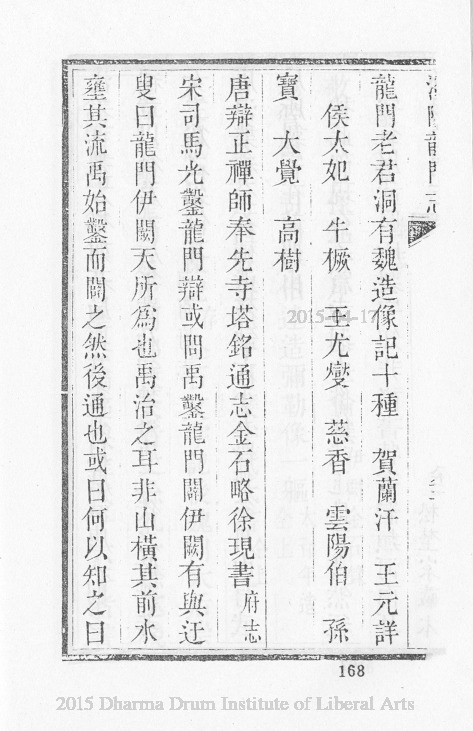 洛陽龍門志
龍門老君洞有魏造像記十種 賀蘭汗 王元詳
侯太妃 牛橛 王尤燮 慈香 雲陽伯 孫
寶 大覺 高樹
唐辯正禪師奉先寺塔銘通志金石略徐現書府志
宋司馬光鑿龍門辯或問禹鑿龍門闢伊闕有與迂
叟曰龍門伊闕天所為也禹治之耳非山橫其前水
壅其流禹始鑿而闢之然後通也或曰何以知之曰
168
2015-04-17
2015 Dharma Drum Institute of Liberal Arts